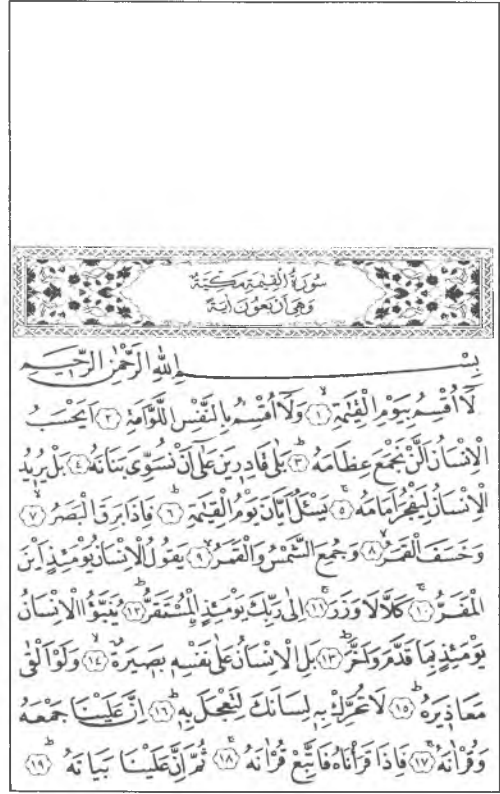 سُورَةُ الْقِيٰمَةِ مَكِّيَّةٌ
وَهِيَ اَرْبَعُونَ اٰيَةً
بِسْمِ اللّٰهِ الرَّحْمٰنِ الرَّحِيمِ
لَٓا اُقْسِمُ بِيَوْمِ الْقِيٰمَةِۙ ﴿١﴾ وَلَٓا اُقْسِمُ بِالنَّفْسِ اللَّوَّامَةِۜ ﴿٢﴾ اَيَحْسَبُ
الْاِنْسَانُ اَلَّنْ نَجْمَعَ عِظَامَهُۜ ﴿٣﴾ بَلٰى قَادِرِينَ عَلٰٓى اَنْ نُسَوِّيَ بَنَانَهُ ﴿٤﴾ بَلْ يُرِيدُ
الْاِنْسَانُ لِيَفْجُرَ اَمَامَهُۚ ﴿٥﴾ يَسْـَٔلُ اَيَّانَ يَوْمُ الْقِيٰمَةِۜ ﴿٦﴾ فَاِذَا بَرِقَ الْبَصَرُۙ ﴿٧﴾
وَخَسَفَ الْقَمَرُۙ ﴿٨﴾ وَجُمِعَ الشَّمْسُ وَالْقَمَرُۙ ﴿٩﴾ يَقُولُ الْاِنْسَانُ يَوْمَئِذٍ اَيْنَ
الْمَفَرُّۚ ﴿١٠﴾ كَلَّا لَا وَزَرَۜ ﴿١١﴾ اِلٰى رَبِّكَ يَوْمَئِذٍ الْمُسْتَقَرُّۜ ﴿١٢﴾ يُنَبَّؤُا الْاِنْسَانُ
يَوْمَئِذٍ بِمَا قَدَّمَ وَاَخَّرَۜ ﴿١٣﴾ بَلِ الْاِنْسَانُ عَلٰى نَفْسِهِ بَصِيرَةٌۙ ﴿١٤﴾ وَلَوْ اَلْقٰى
مَعَاذِيرَهُۜ ﴿١٥﴾ لَا تُحَرِّكْ بِهِ لِسَانَكَ لِتَعْجَلَ بِهِۜ ﴿١٦﴾ اِنَّ عَلَيْنَا جَمْعَهُ
وَقُرْاٰنَهُۚ ﴿١٧﴾ فَاِذَا قَرَأْنَاهُ فَاتَّبِعْ قُرْاٰنَهُۚ ﴿١٨﴾ ثُمَّ اِنَّ عَلَيْنَا بَيَانَهُۜ ﴿١٩﴾